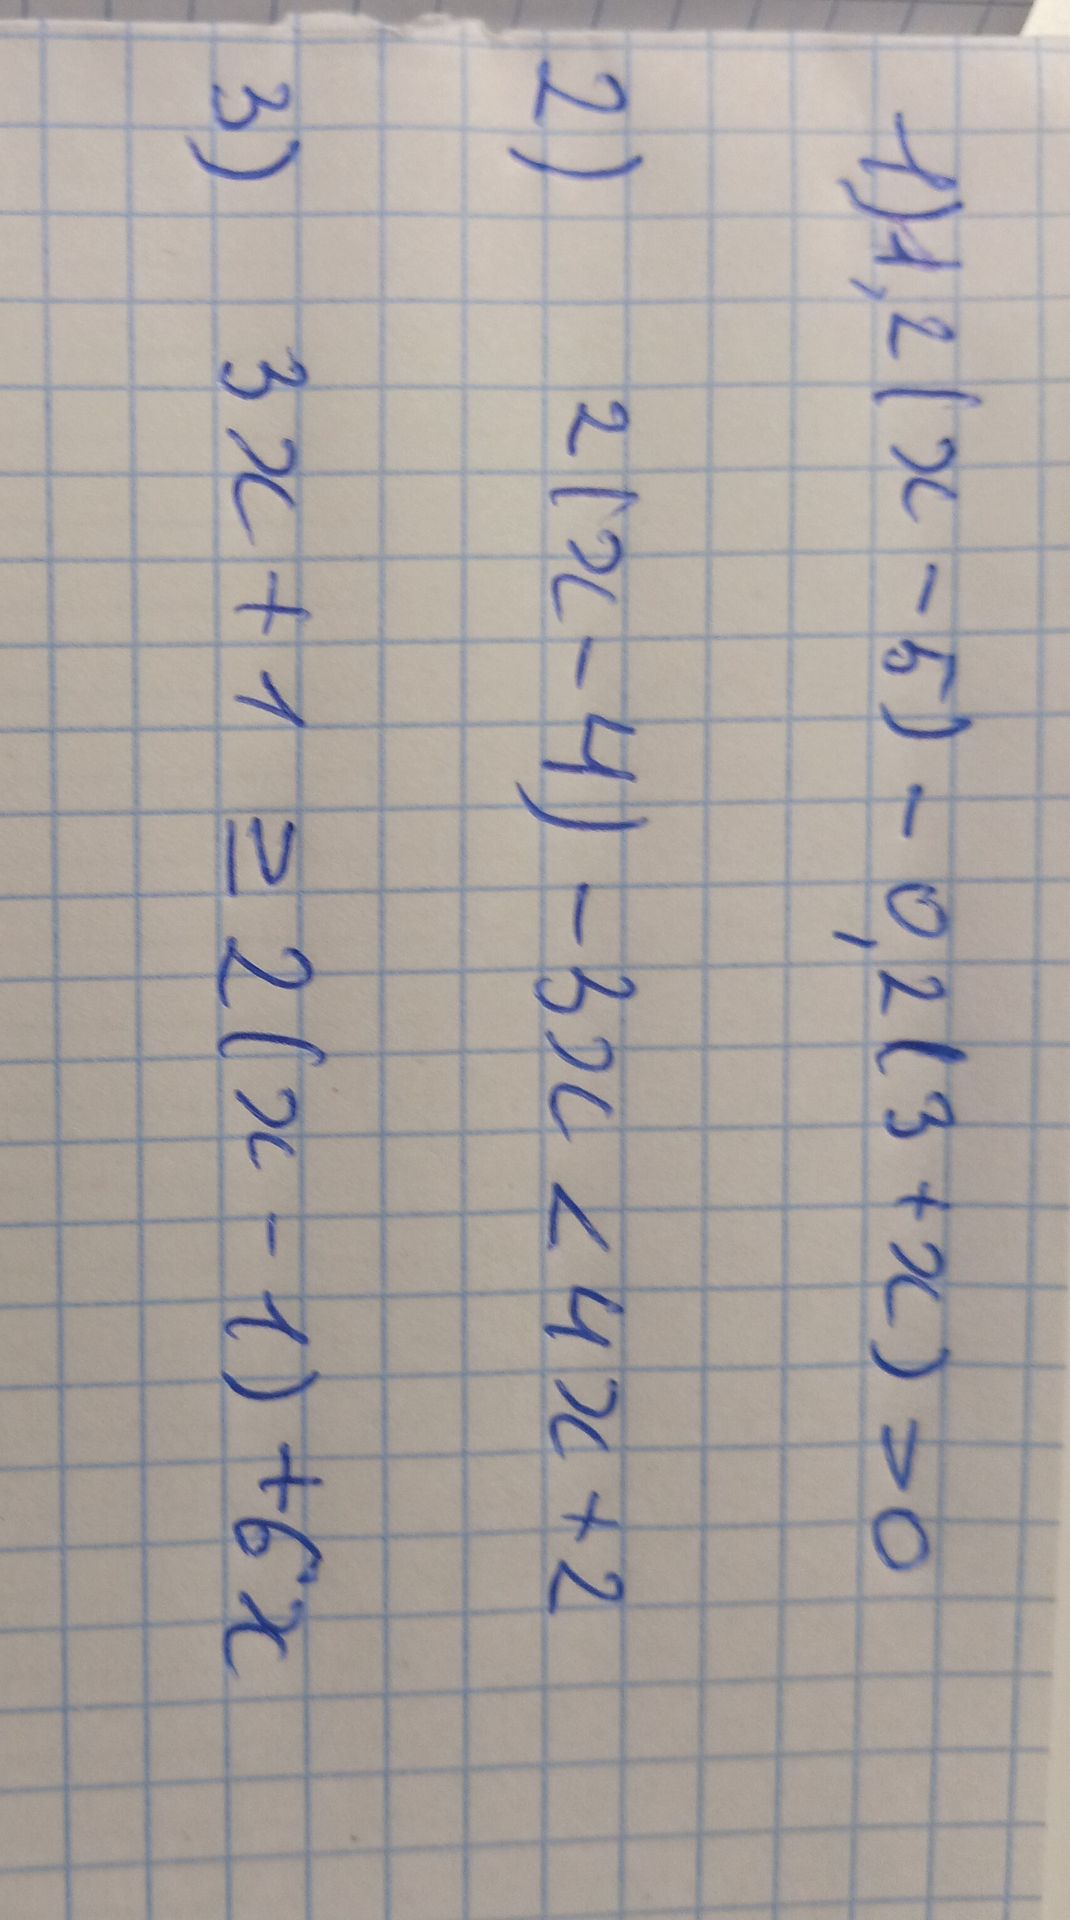 1) 1,2(x-5)-0,2(3+x)>0
2) 2(x-4)-3x<4x+2
3) 3x+1≥2(x-1)+6x